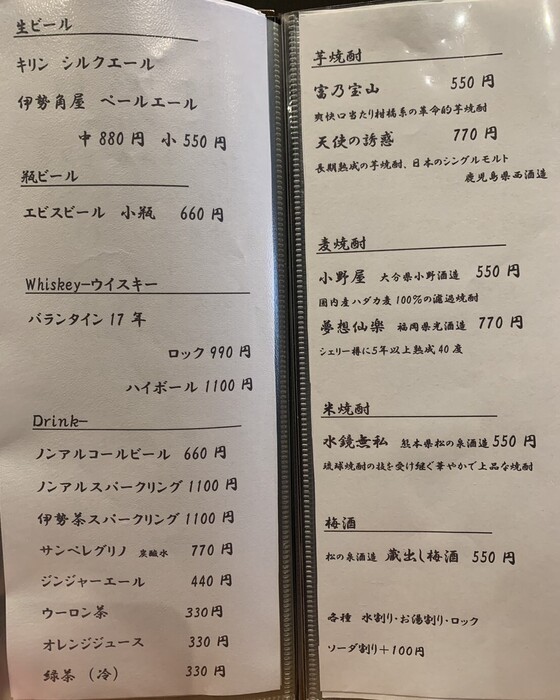 生ビール
キリン シルクエール
伊勢角屋 ペールエール
中 880 円 小 550 円
瓶ビール
エビスビール 小瓶 660 円
Whiskeyーウイスキー
バランタイン 17 年
ロック 990 円
ハイボール 1100 円
Drinkー
ノンアルコールビール 660 円
ノンアルスパークリング 1100 円
伊勢茶スパークリング 1100 円
サンペレグリノ 炭酸水 770 円
ジンジャーエール 440 円
ウーロン茶 330円
オレンジジュース 330 円
緑茶 (冷) 330 円
芋焼酎
富乃宝山 550 円
爽快口当たり柑橘系の革命的芋焼酎
天使の誘惑 770 円
長期熟成の芋焼酎、日本のシングルモルト
鹿児島県西酒造
麦焼酎
小野屋 大分県小野酒造 550 円
国内産ハダカ麦 100%の濾過焼酎
夢想仙楽 福岡県光酒造 770 円
シェリー樽に5年以上熟成 40 度
米焼酎
水鏡無私 熊本県松の泉酒造 550 円
琉球焼酎の技を受け継ぐ華やかで上品な焼酎
梅酒
松の泉酒造 蔵出し梅酒 550 円
各種 水割り・お湯割り・ロック
ソーダ割り+100円